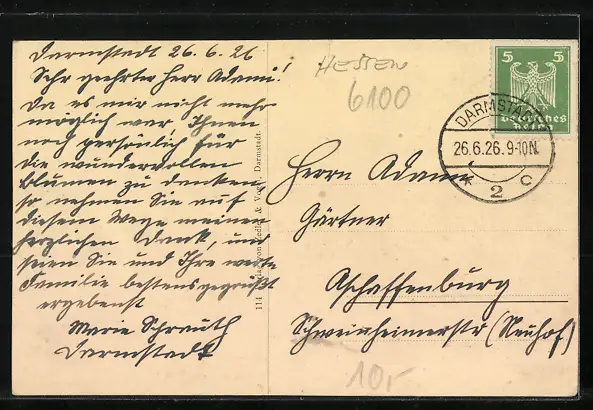 Darmstadt 26.6.26
Sehr geehrter Herr Adami!
Da es mir nicht mehr
möglich war Ihnen
noch persönlich für
die wundervollen
Blumen zu danken
so nehmen Sie auf
diesem Wege meinen
herzlichen Dank, und
seien Sie und Ihre werte
Familie bestens gegrüßt
ergebenst
Marie Schreuth
Darmstadt
114 Verlag von & Darmstadt.
HESSEN
6100
5 5
Deutsches
Reich
DARMSTADT
26.6.26.9-10N.
* 2 C
Herrn Adami
Gärtner
Aschaffenburg
Schweinheimerstr (Neuhof)
10,-